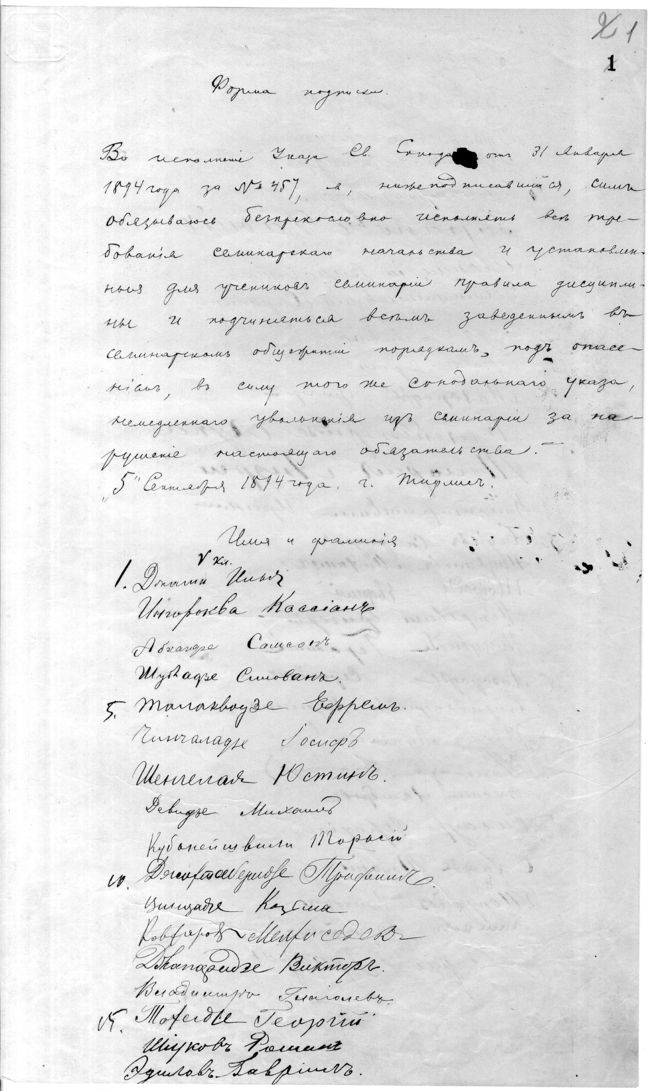 1
1
Форма подписки.
Во исполненіе Указа Св. Синода отъ 31 Января
1894 года за № 457, я, нижеподписавшійся, симъ
обязываюсь безпрекословно исполнять всѣ тре-
бованія семинарскаго начальства и установлен-
ныя для учениковъ семинаріи правила дисципли-
ны и подчиняться всѣмъ заведеннымъ въ
семинарскомъ общежитіи порядкамъ, подъ опасе-
ніемъ, въ силу того же синодальнаго указа,
немедленнаго увольненія изъ семинаріи за на-
рушеніе настоящаго обязательства.
"5" Сентября 1894 года. г. Тифлисъ.
Имя и фамилія
V кл.
1. Илья
Ингороква Кассіанъ
Абхаидзе Самсонъ
Шубладзе Силованъ.
5. Талаквадзе Ефремъ.
Чинчаладзе Іосифъ
Шенгелая Юстинъ.
Девидзе Михаилъ
Кубанейшвили Тарасій
10. Трифонъ.
Цинцадзе Козьма
Мелхиседекъ
Джапаридзе Викторъ.
Владиміръ Глаголевъ.
15. Георгій
Шіуковъ Романъ
Эдиловъ Гавріилъ.